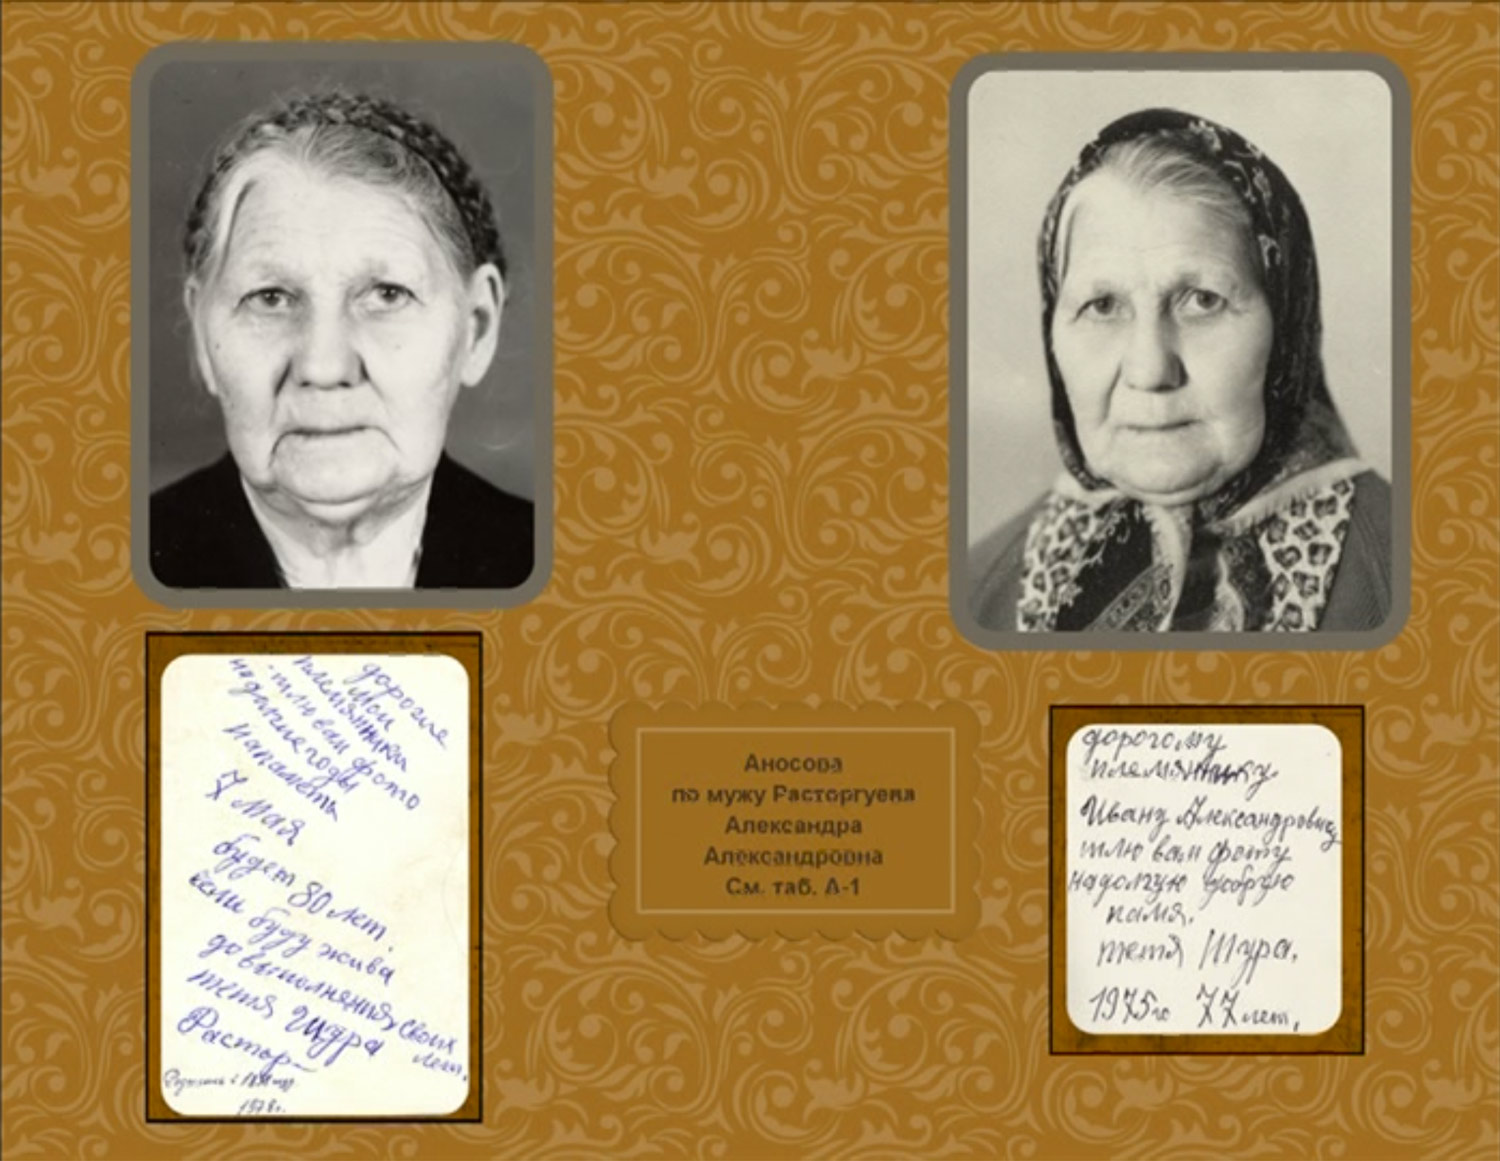 дорогие
мои
племянники
шлю вам фото
на долгие годы
напаметь
7 мая
будет 80 лет.
если буду жива
довыполнения своих лет.
тетя Шура
Растор-
1978г.
Аносова
по мужу Расторгуева
Александра
Александровна
См. таб. А-1
дорогому
племяннику
Ивану Александровичу
шлю вам фоту
надолгую добрую
памя.
тетя Шура.
1975го 77 лет.